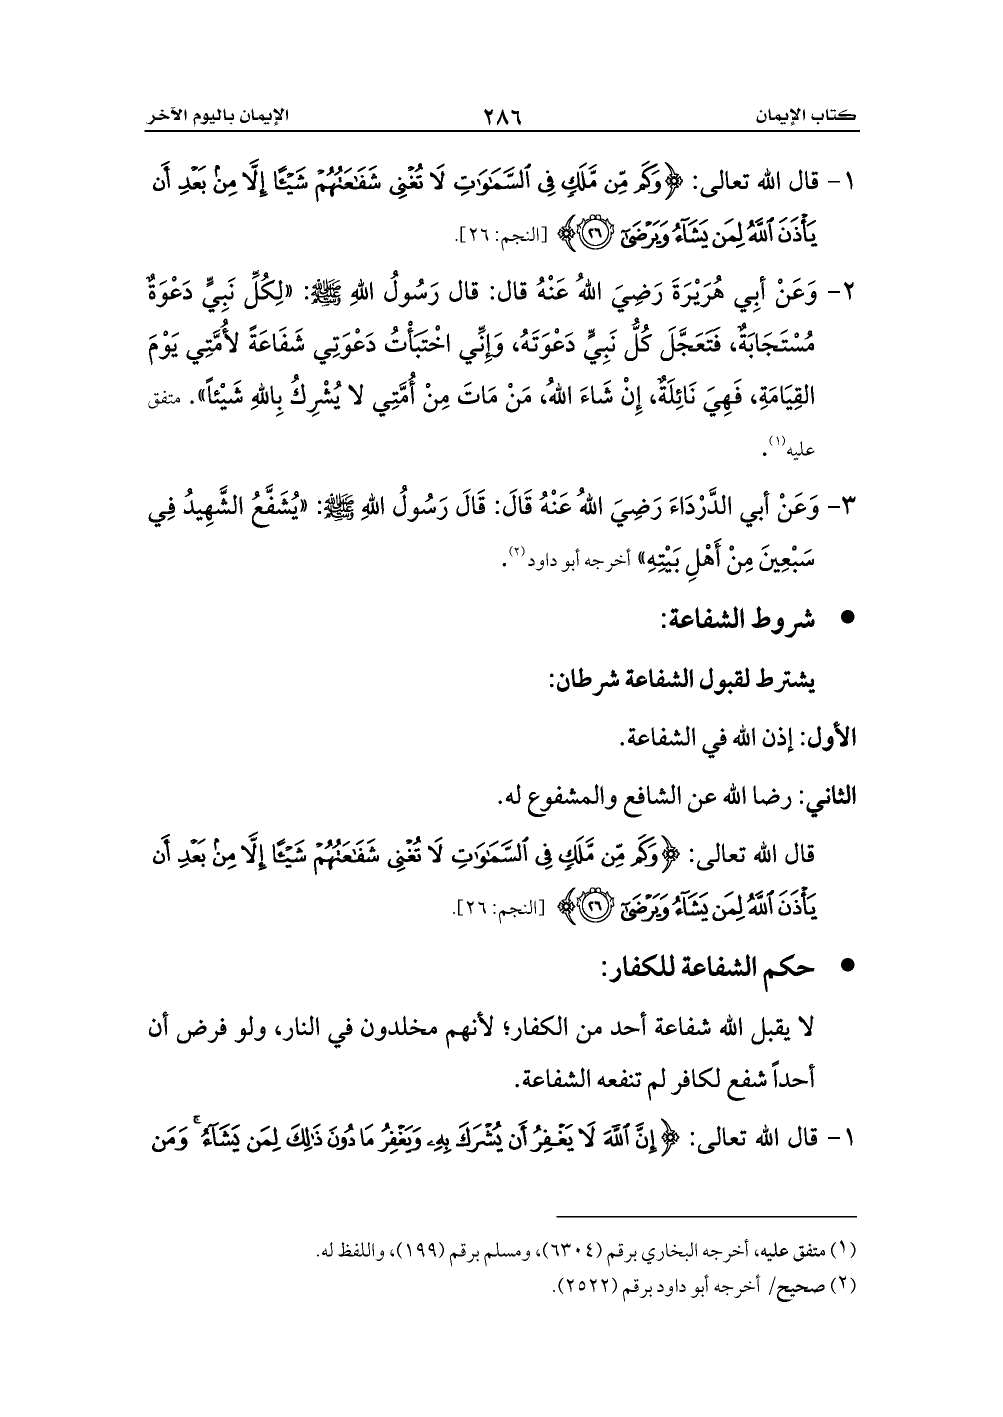 كتاب الإيمان ٢٨٦ الإيمان باليوم الآخر
١- قال الله تعالى: ﴿وَكَم مِّن مَّلَكٍ فِي ٱلسَّمَٰوَٰتِ لَا تُغْنِي شَفَٰعَتُهُمْ شَيْـًٔا إِلَّا مِنۢ بَعْدِ أَن
يَأْذَنَ ٱللَّهُ لِمَن يَشَآءُ وَيَرْضَىٰٓ ٢٦﴾ [النجم: ٢٦].
٢- وَعَنْ أبِي هُرَيْرَةَ رَضِيَ اللهُ عَنْهُ قال: قال رَسُولُ اللهِ ﷺ: «لِكُلِّ نَبِيٍّ دَعْوَةٌ
مُسْتَجَابَةٌ، فَتَعَجَّلَ كُلُّ نَبِيٍّ دَعْوَتَهُ، وَإِنِّي اخْتَبَأْتُ دَعْوَتِي شَفَاعَةً لأُمَّتِي يَوْمَ
القِيَامَةِ، فَهِيَ نَائِلَةٌ، إِنْ شَاءَ اللهُ، مَنْ مَاتَ مِنْ أُمَّتِي لا يُشْرِكُ بِاللهِ شَيْئاً». متفق
عليه(١).
٣- وَعَنْ أبي الدَّرْدَاءَ رَضِيَ اللهُ عَنْهُ قَالَ: قَالَ رَسُولُ اللهِ ﷺ: «يُشَفَّعُ الشَّهِيدُ فِي
سَبْعِينَ مِنْ أَهْلِ بَيْتِهِ» أخرجه أبو داود(٢).
● شروط الشفاعة:
يشترط لقبول الشفاعة شرطان:
الأول: إذن الله في الشفاعة.
الثاني: رضا الله عن الشافع والمشفوع له.
قال الله تعالى: ﴿وَكَم مِّن مَّلَكٍ فِي ٱلسَّمَٰوَٰتِ لَا تُغْنِي شَفَٰعَتُهُمْ شَيْـًٔا إِلَّا مِنۢ بَعْدِ أَن
يَأْذَنَ ٱللَّهُ لِمَن يَشَآءُ وَيَرْضَىٰٓ ٢٦﴾ [النجم: ٢٦].
● حكم الشفاعة للكفار:
لا يقبل الله شفاعة أحد من الكفار؛ لأنهم مخلدون في النار، ولو فرض أن
أحداً شفع لكافر لم تنفعه الشفاعة.
١- قال الله تعالى: ﴿إِنَّ ٱللَّهَ لَا يَغْفِرُ أَن يُشْرَكَ بِهِۦ وَيَغْفِرُ مَا دُونَ ذَٰلِكَ لِمَن يَشَآءُ ۚ وَمَن
(١) متفق عليه، أخرجه البخاري برقم (٦٣٠٤)، ومسلم برقم (١٩٩)، واللفظ له.
(٢) صحيح/ أخرجه أبو داود برقم (٢٥٢٢).